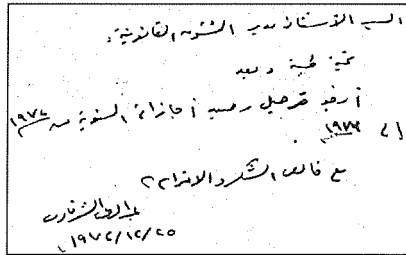 السيد الأستاذ مدير الشئون القانونية،
تحية طيبة وبعد
أرجو ترحيل رصيد أجازاتى السنوية من ١٩٧٢
إلى ١٩٧٣.
مع فائق الشكر والاحترام،
١٩٧٢/١٢/٢٥